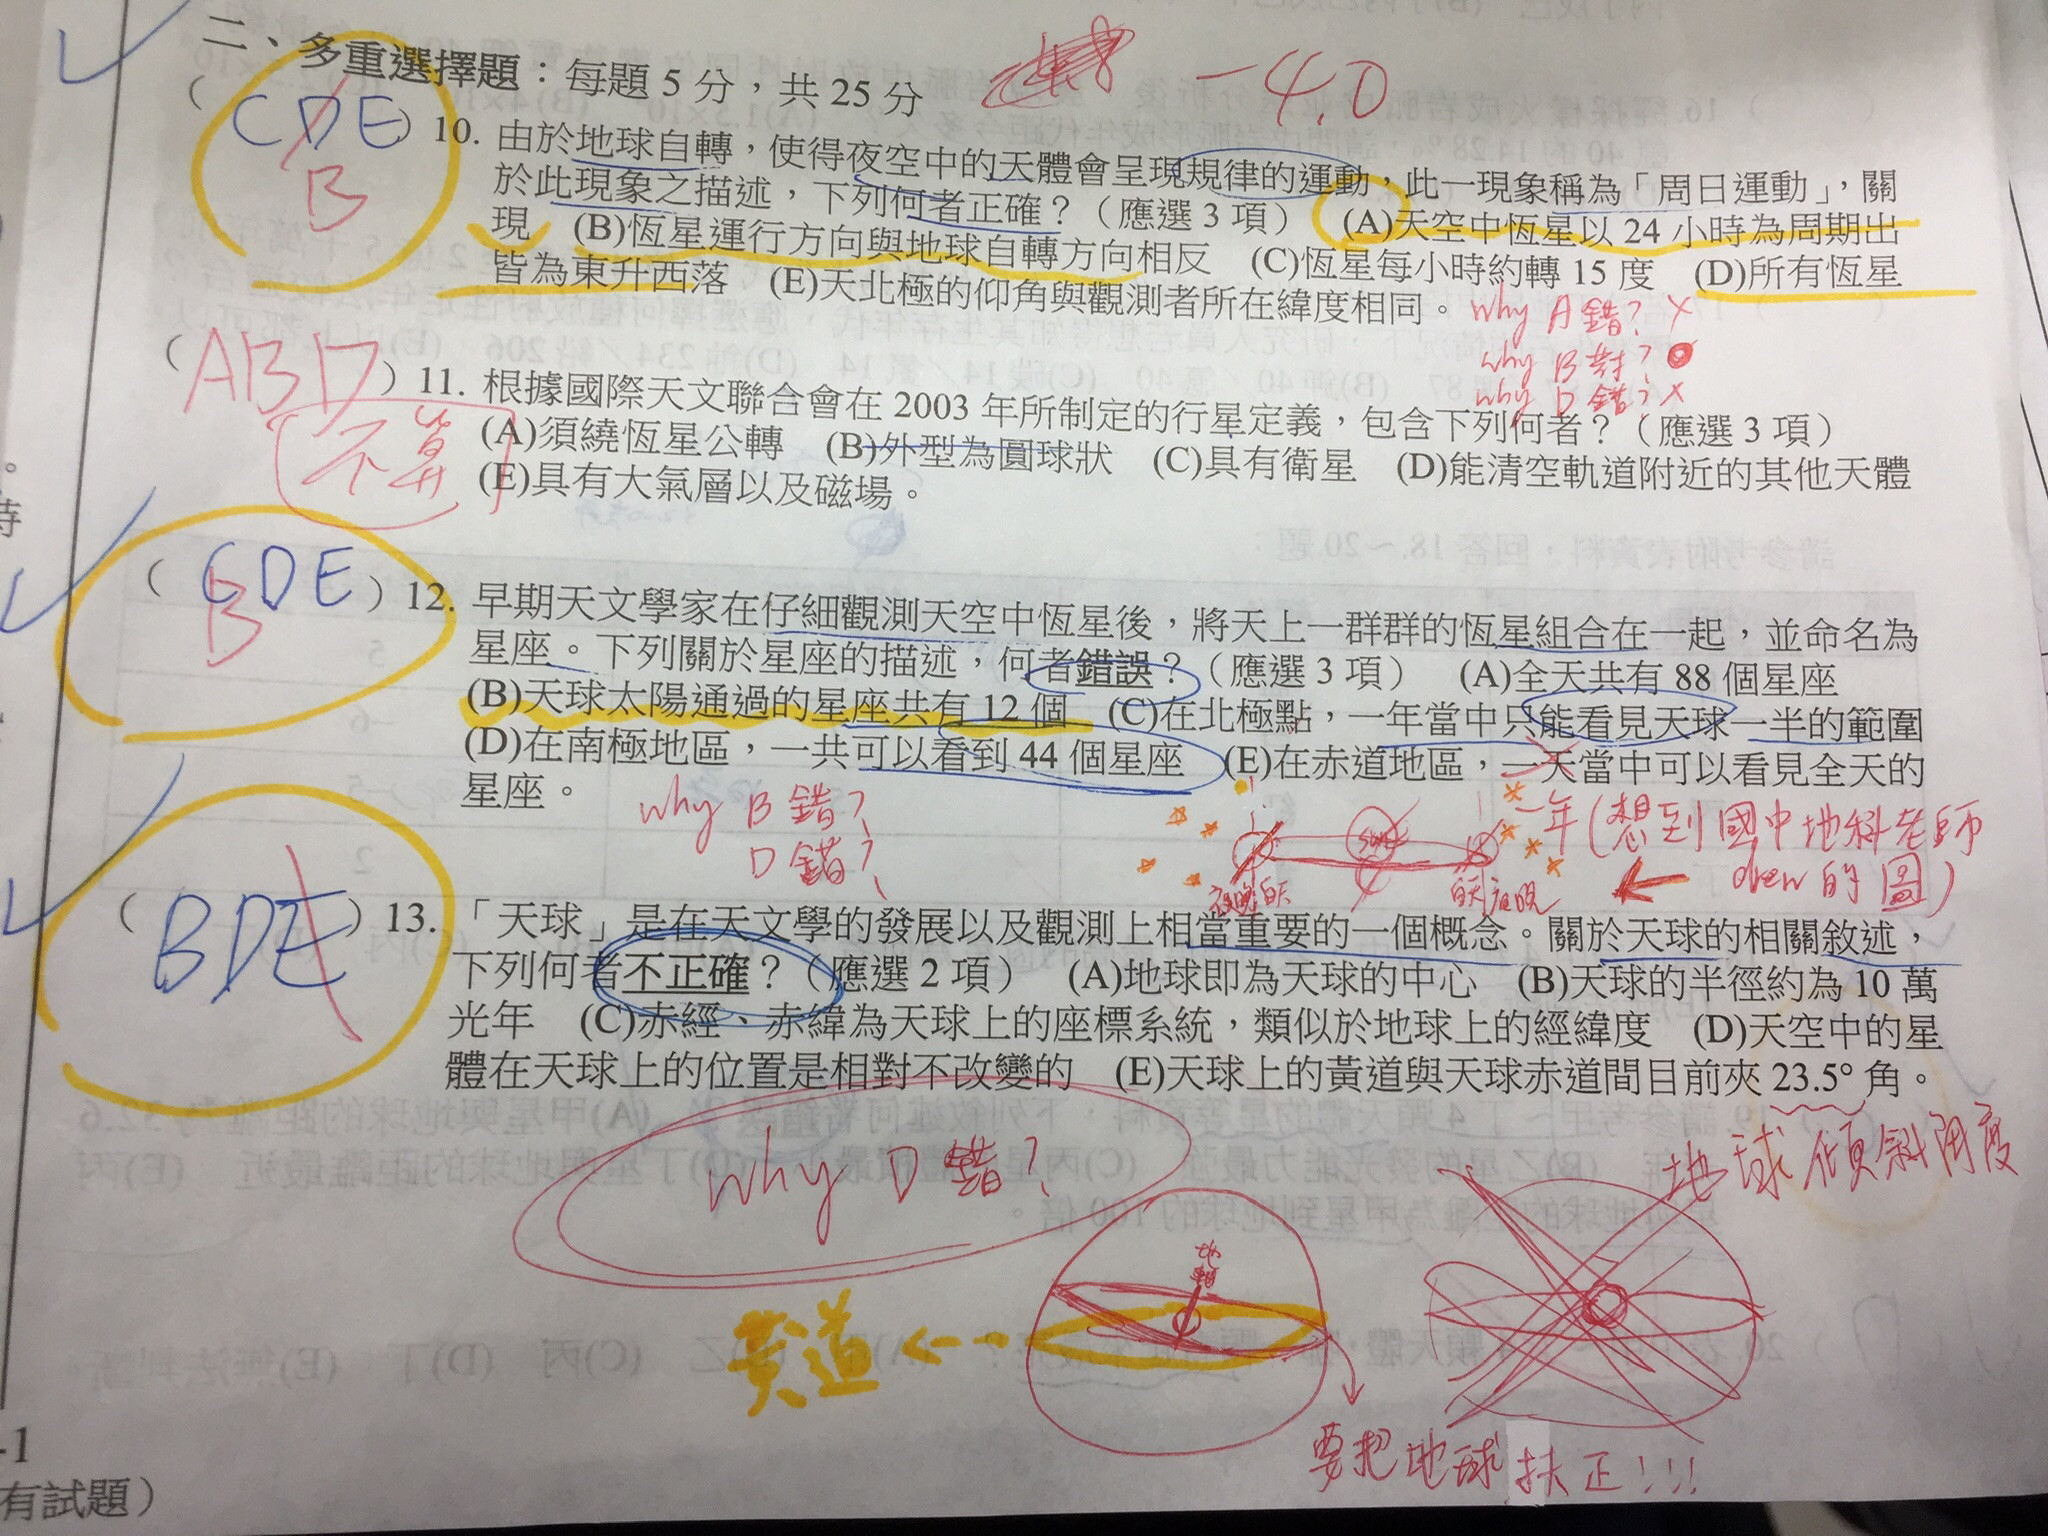 二、多重選擇題：每題 5 分，共 25 分
-4.0
( CDE ) 10. 由於地球自轉，使得夜空中的天體會呈現規律的運動，此一現象稱為「周日運動」，關
B
於此現象之描述，下列何者正確？（應選 3 項） (A)天空中恆星以 24 小時為周期出
現 (B)恆星運行方向與地球自轉方向相反 (C)恆星每小時約轉 15 度 (D)所有恆星
皆為東升西落 (E)天北極的仰角與觀測者所在緯度相同。
why A 錯? X
why B 對?
why D 錯? X
( ABD ) 11. 根據國際天文聯合會在 2003 年所制定的行星定義，包含下列何者？（應選 3 項）
不算
(A)須繞恆星公轉 (B)外型為圓球狀 (C)具有衛星 (D)能清空軌道附近的其他天體
(E)具有大氣層以及磁場。
( CDE ) 12. 早期天文學家在仔細觀測天空中恆星後，將天上一群群的恆星組合在一起，並命名為
B
星座。下列關於星座的描述，何者錯誤？（應選 3 項） (A)全天共有 88 個星座
(B)天球太陽通過的星座共有 12 個 (C)在北極點，一年當中只能看見天球一半的範圍
(D)在南極地區，一共可以看到 44 個星座 (E)在赤道地區，一天當中可以看見全天的
星座。
why B 錯?
D 錯?
一年(想到國中地科老師
drew 的圖)
SUN
夜晚 白天
白天 夜晚
( BDE ) 13. 「天球」是在天文學的發展以及觀測上相當重要的一個概念。關於天球的相關敘述，
下列何者不正確？（應選 2 項） (A)地球即為天球的中心 (B)天球的半徑約為 10 萬
光年 (C)赤經、赤緯為天球上的座標系統，類似於地球上的經緯度 (D)天空中的星
體在天球上的位置是相對不改變的 (E)天球上的黃道與天球赤道間目前夾 23.5° 角。
why D 錯?
地球傾斜角度
地軸
黃道
要把地球扶正!!!
-1
有試題）